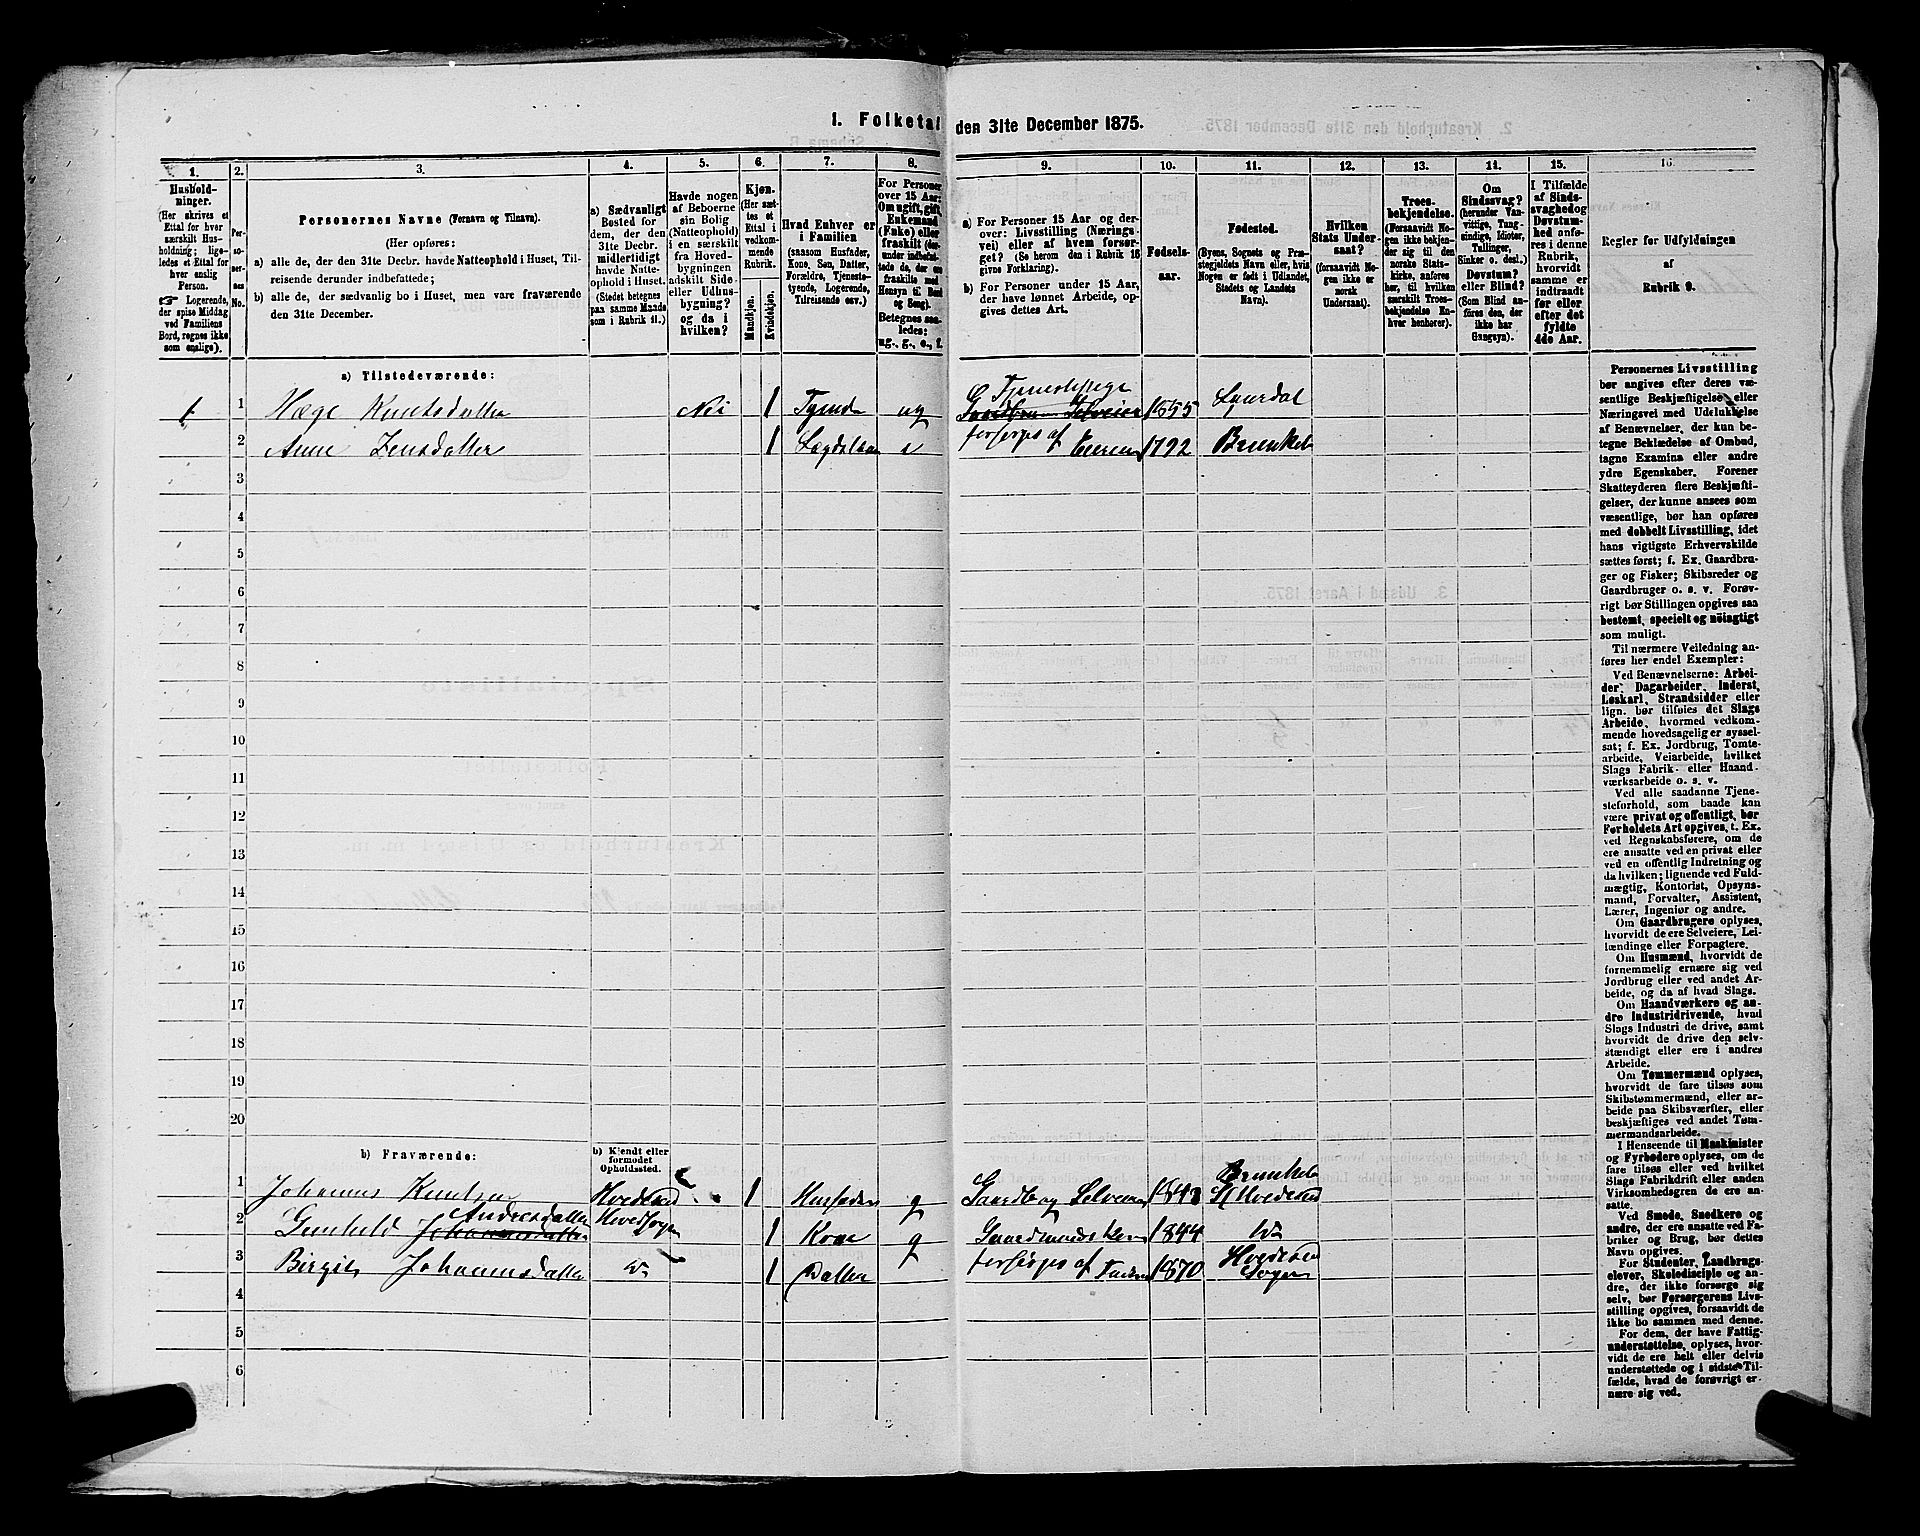 1. Folketal den 31te December 1875.
1.
Hushold-
ninger.
(Her skrives et
Ettal for hver
særskilt Hus-
holdning; lige-
ledes et Ettal for
hver enslig
Person.
☞ Logerende,
der spise Middag
ved Familiens
Bord, regnes ikke
som enslige).
2.
Per-
so-
ner-
nes
No.
3.
Personernes Navne (Fornavn og Tilnavn).
(Her opføres:
a) alle de, der den 31te Decbr. havde Natteophold i Huset, Til-
reisende derunder indbefattede;
b) alle de, der sædvanlig bo i Huset, men vare fraværende
den 31te December.
4.
a) Sædvanligt
Bosted for
dem, der den
31te Decbr.
midlertidigt
havde Natte-
ophold i Huset.
(Stedet betegnes
paa samme Maade
som i Rubrik 11.)
5.
Havde nogen
af Beboerne
sin Bolig
(Natteophold)
i en særskilt
fra Hoved-
bygningen
adskilt Side-
eller Udhus-
bygning?
og da i
hvilken?
6.
Kjøn.
(Her sæt-
tes et
Ettal i
vedkom-
mende
Rubrik.
Mandkjøn.
Kvindekjøn.
7.
Hvad Enhver er
i Familien
(saasom Husfader,
Kone, Søn, Datter,
Forældre, Tjeneste-
tyende, Logerende,
Tilreisende osv.)
8.
For Personer
over 15 Aar:
Om ugift, gift,
Enkemand
(Enke) eller
fraskilt (der-
under indbefat-
tede de, der ere
fraskilte med
Hensyn til Bord
og Seng).
Betegnes saa-
ledes:
ug., g., e., f.
9.
a) For Personer 15 Aar og der-
over: Livsstilling (Nærings-
vei) eller af hvem forsør-
get? (Se herom den i Rubrik 16
givne Forklaring).
b) For Personer under 15 Aar,
der have lønnet Arbeide, op-
gives dettes Art.
10.
Fødsels-
aar.
11.
Fødested.
(Byens, Sognets og Præ-
stegjeldets Navn eller, hvis
Nogen er født i Udlandet,
Stedets og Landets
Navn).
12.
Hvilken
Stats Under-
saat?
(forsaavidt No-
gen ikke er
norsk
Undersaat).
13.
Troes-
bekjendelse.
(Forsaavidt No-
gen ikke bekjen-
der sig til den
norske Stats-
kirke, anføres
her, til hvilken
særskilt Troes-
bekjendelse En-
hver henhører).
14.
Om
Sindssvag?
(herunder Van-
vittige, Tung-
sindige, Idioter,
Tullinger,
Sinker o. desl.)
Døvstum?
eller Blind?
(Som Blind an-
føres den, der
ikke har
Gangsyn).
15.
I Tilfælde
af Sinds-
svaghed og
Døvstum-
hed anfø-
res i denne
Rubrik,
hvorvidt
samme er
indtraadt
før eller
efter det
fyldte
4de Aar.
16.
Regler for Udfyldningen
af
Rubrik 9.
a) Tilstedeværende:
1 1 Hæge Knutsdatter Nei 1 Tyende ug Tjenestepige Gaardbru Selveier 1855 Laurdal
2 Anne Jensdatter 1 e forsørges af Eieren 1792 Brunkeb
3
4
5
6
7
8
9
10
11
12
13
14
15
16
17
18
19
20
b) Fraværende:
b) Kjendt eller
formodet
Opholdssted.
1 Johannes Knutsen Hvedesød 1 Husfader g Gaardbrug Selveier 1843 Brunkeb
2 Gunhild Johannesdatter Andersdatter Hvedesogn 1 Kone g Gaardmands Kone 1844
3 Birgit Johannesdatter 1 Datter forsørges af Faderen 1870 Sogn
4
5
6
Personernes Livsstilling
bør angives efter deres væ-
sentlige Beskjæftigelse eller
Næringsvei med Udelukkelse
af Benævnelser, der kun be-
tegne Beklædelse af Ombud,
tagne Examina eller andre
ydre Egenskaber. Forener
Skatteyderen flere Beskjæfti-
gelser, der kunne ansees som
væsentlige, bør han opføres
med dobbelt Livsstilling, idet
hans vigtigste Erhvervskilde
sættes først; f. Ex. Gaardbru-
ger og Fisker; Skibsreder og
Gaardbruger o. s. v. Forøv-
rigt bør Stillingen opgives saa
bestemt, specielt og nöiagtigt
som muligt.
Til nærmere Veiledning an-
føres her endel Exempler:
Ved Benævnelserne: Arbei-
der, Dagarbeider, Inderst,
Løskarl, Strandsidder eller
lign. bør tilføies det Slags
Arbeide, hvormed vedkom-
mende hovedsagelig er syssel-
sat; f. Ex. Jordbrug, Tomte-
arbeide, Veiarbeide, hvilket
Slags Fabrik- eller Haand-
værksarbeide o. s. v.
Ved alle saadanne Tjene-
steforhold, som baade kan
være privat og offentligt, bør
Forholdets Art opgives, t. Ex.
ved Regnskabsførere, om de
ere ansatte ved en privat eller
ved en offentlig Indretning og
da hvilken; lignende ved Fuld-
mægtig, Kontorist, Opsyns-
mand, Forvalter, Assistent,
Lærer, Ingeniør og andre.
Om Gaardbrugere oplyses,
hvorvidt de ere Selveiere, Lei-
lændinge eller Forpagtere.
Om Husmænd, hvorvidt de
fornemmelig ernære sig ved
Jordbrug eller ved andet Ar-
beide, og da af hvad Slags.
Om Haandværkere og an-
dre Industridrivende, hvad
Slags Industri de drive, samt
hvorvidt de drive den selv-
stændigt eller ere i andres
Arbeide.
Om Tømmermænd oplyses,
hvorvidt de fare tilsøs som
Skibstømmermænd, eller ar-
beide paa Skibsværfter, eller
beskjæftiges ved andet Tøm-
mermandsarbeide.
I Henseende til Maskinister
og Fyrbødere oplyses, om de
fare tilsøs eller ved hvilket
Slags Fabrikdrift eller anden
Virksomhedsgren de ere an-
satte.
Ved Smede, Snedkere og
andre, der ere ansatte ved Fa-
briker og Brug, bør dettes
Navn opgives.
For Studenter, Landbrugs-
elever, Skoledisciple og an-
dre, der ikke forsørge sig
selv, bør Forsørgerens Livs-
stilling opgives, forsaavidt de
ikke bo sammen med denne.
For dem, der have Fattig-
understøttelse, oplyses, hvor-
vidt de ere helt eller delvis
understøttede og i sidste Til-
fælde, hvad de forøvrigt er-
nære sig ved.